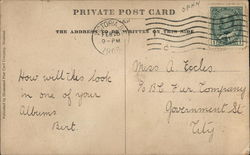 PRIVATE POST CARD
THE ADDRESS TO BE WRITTEN ON THIS SIDE
9-PM
How will this look
in one of your
Albums
Bert.
Miss A. Eccles
B.C. Fur Company
Government St
City